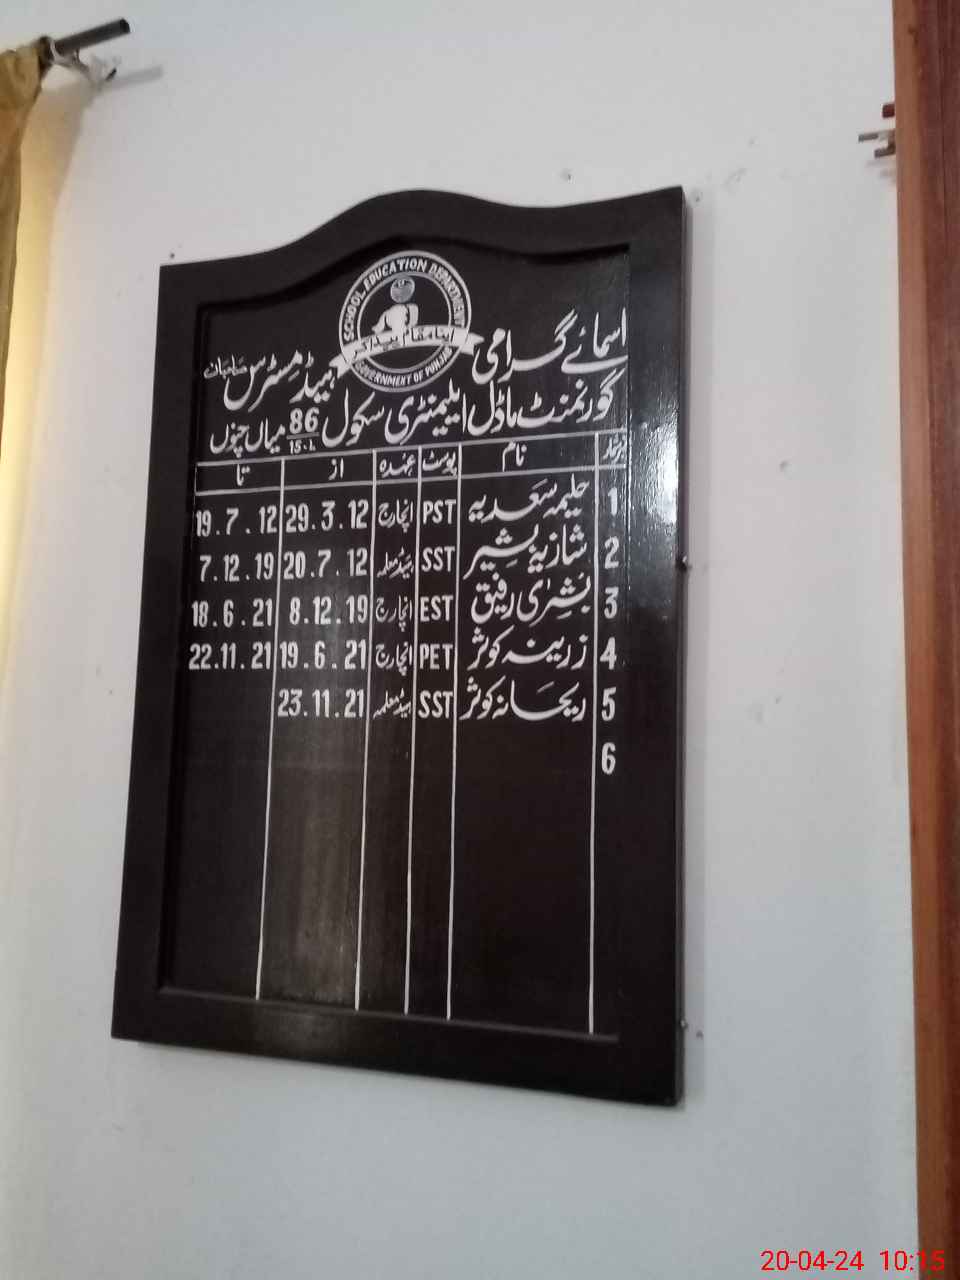 SCHOOL EDUCATION DEPARTMENT
GOVERNMENT OF PUNJAB
اسمائے گرامی ہیڈ مسٹرس صاحبان
گورنمنٹ ماڈل ایلیمنٹری سکول 86/15-L میاں چنوں
نام پوسٹ عہدہ از تا
1 حلیمہ سعدیہ PST انچارج 29.3.12 19.7.12
2 شازیہ بشیر SST ہیڈ معلمہ 20.7.12 7.12.19
3 بشریٰ رفیق EST انچارج 8.12.19 18.6.21
4 زرینہ کوثر PET انچارج 19.6.21 22.11.21
5 ریحانہ کوثر SST ہیڈ معلمہ 23.11.21
6
20-04-24 10:15